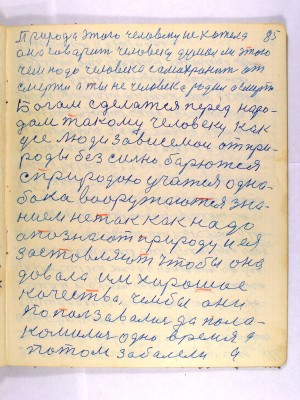 Природа этого человеку не хотела 85
она говарит человеку думал ли этого
чем надо человека самахранит от
смерти а ты не человека родил а смерть
Богом сделатся перед наро-
дам такому человеку как
усе люди зависемои от при-
роды без силно барются
с природою учатся одно-
бока вооружаются зна-
нием не так как надо
апознают природу и ея
заставляют чтобы она
довала им хорошие
качества, чембы они
попользавались да пола-
комились одно время а
потом забалели а